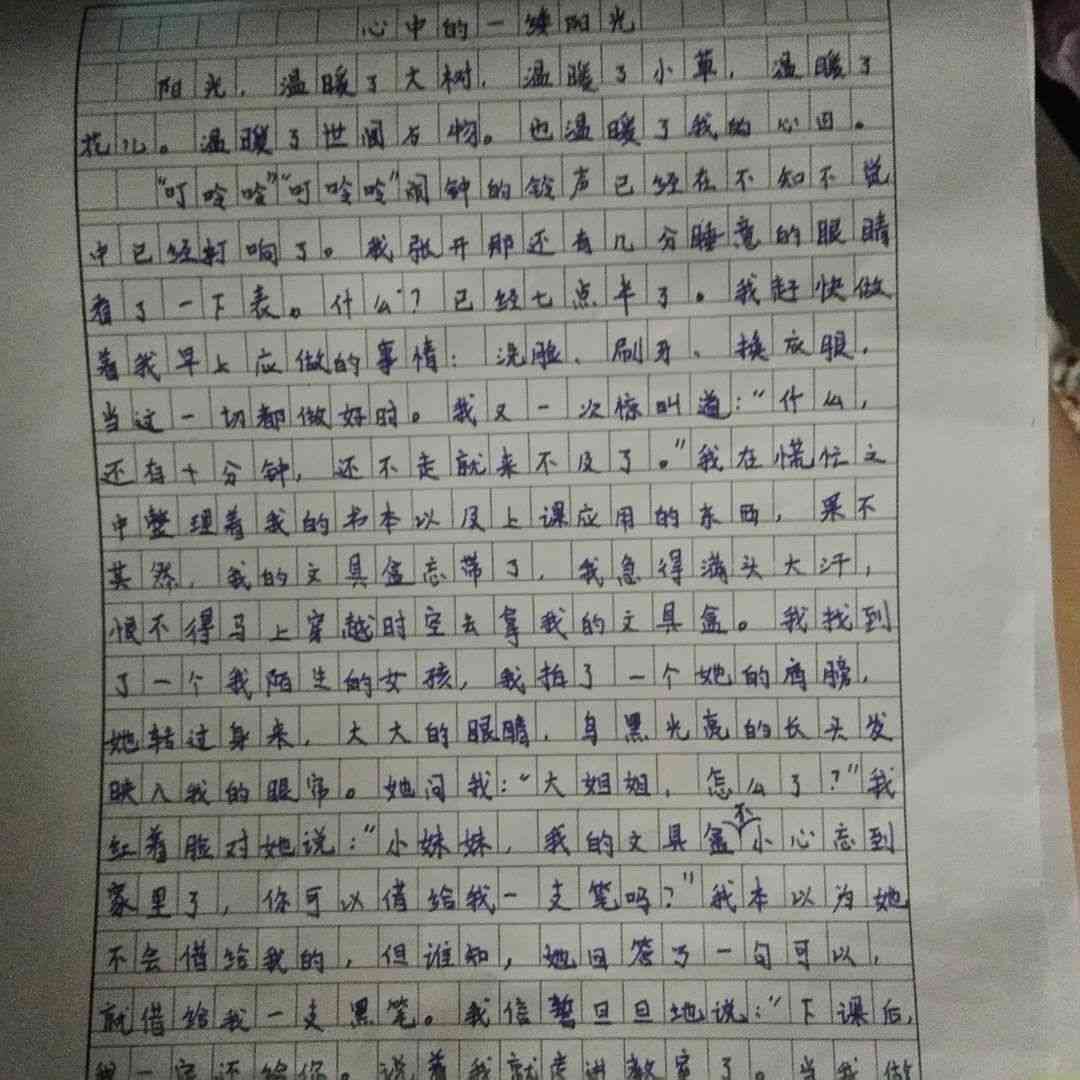 心中的一缕阳光
阳光，温暖了大树，温暖了小草，温暖了
花儿。温暖了世间万物。也温暖了我的心田。
“叮呤呤”“叮呤呤”闹钟的铃声已经在不知不觉
中已经打响了。我张开那还有几分睡意的眼睛
看了一下表。什么？已经七点半了。我赶快做
着我早上应做的事情：洗脸、刷牙、换衣服，
当这一切都做好时。我又一次惊叫道：“什么，
还有十分钟，还不走就来不及了。”我在慌忙之
中整理着我的书本以及上课应用的东西，果不
其然，我的文具盒忘带了，我急得满头大汗，
恨不得马上穿越时空去拿我的文具盒。我找到
了一个我陌生的女孩，我拍了一个她的肩膀，
她转过身来，大大的眼睛，乌黑光亮的长头发
映入我的眼帘。她问我：“大姐姐，怎么了？”我
红着脸对她说：“小妹妹，我的文具盒不小心忘到
家里了，你可以借给我一支笔吗？”我本以为她
不会借给我的，但谁知，她回答了一句可以，
就借给我一支黑笔。我信誓旦旦地说：“下课后，
我一定还给你。说着我就走进教室了。当我做